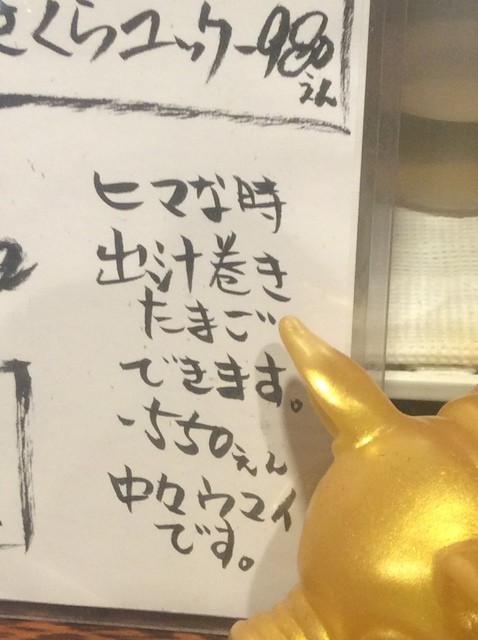 くらユッケ-980
えん
ヒマな時
出汁巻き
たまご
できます。
-550えん
中々ウマイ
です。